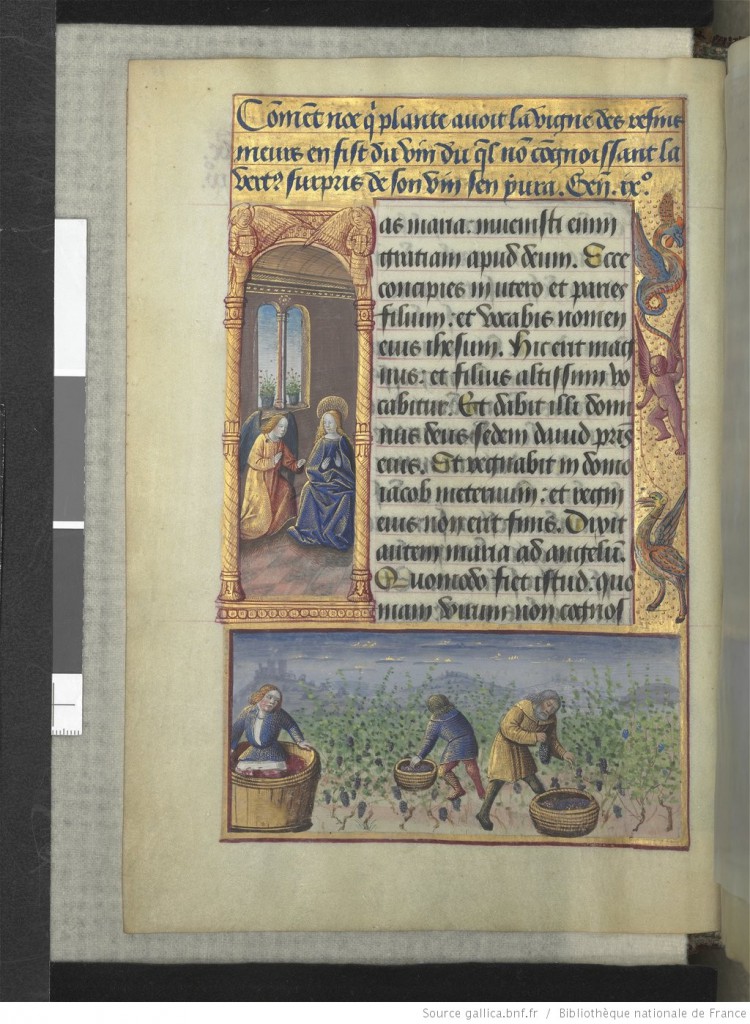 Cõmẽt noe q̃ plante auoit la vigne des resins
meurs en fist du vin du q̃l nõ cõgnoissant la
vert⁹ surpris de son vin sen yura. Geñ. ixº
as maria: inuenisti enim
gratiam apud deum. Ecce
concipies in utero et paries
filium: et vocabis nomen
eius ihesum. Hic erit mag
nus: et filius altissimi vo
cabitur. Et dabit illi domi
nus deus sedem dauid patris
eius. Et regnabit in domo
iacob ineternum: et regni
eius non erit finis. Dixit
autem maria ad angelũ.
Quomodo fiet istud: quo
niam virum non cognos
Source gallica.bnf.fr / Bibliothèque nationale de France